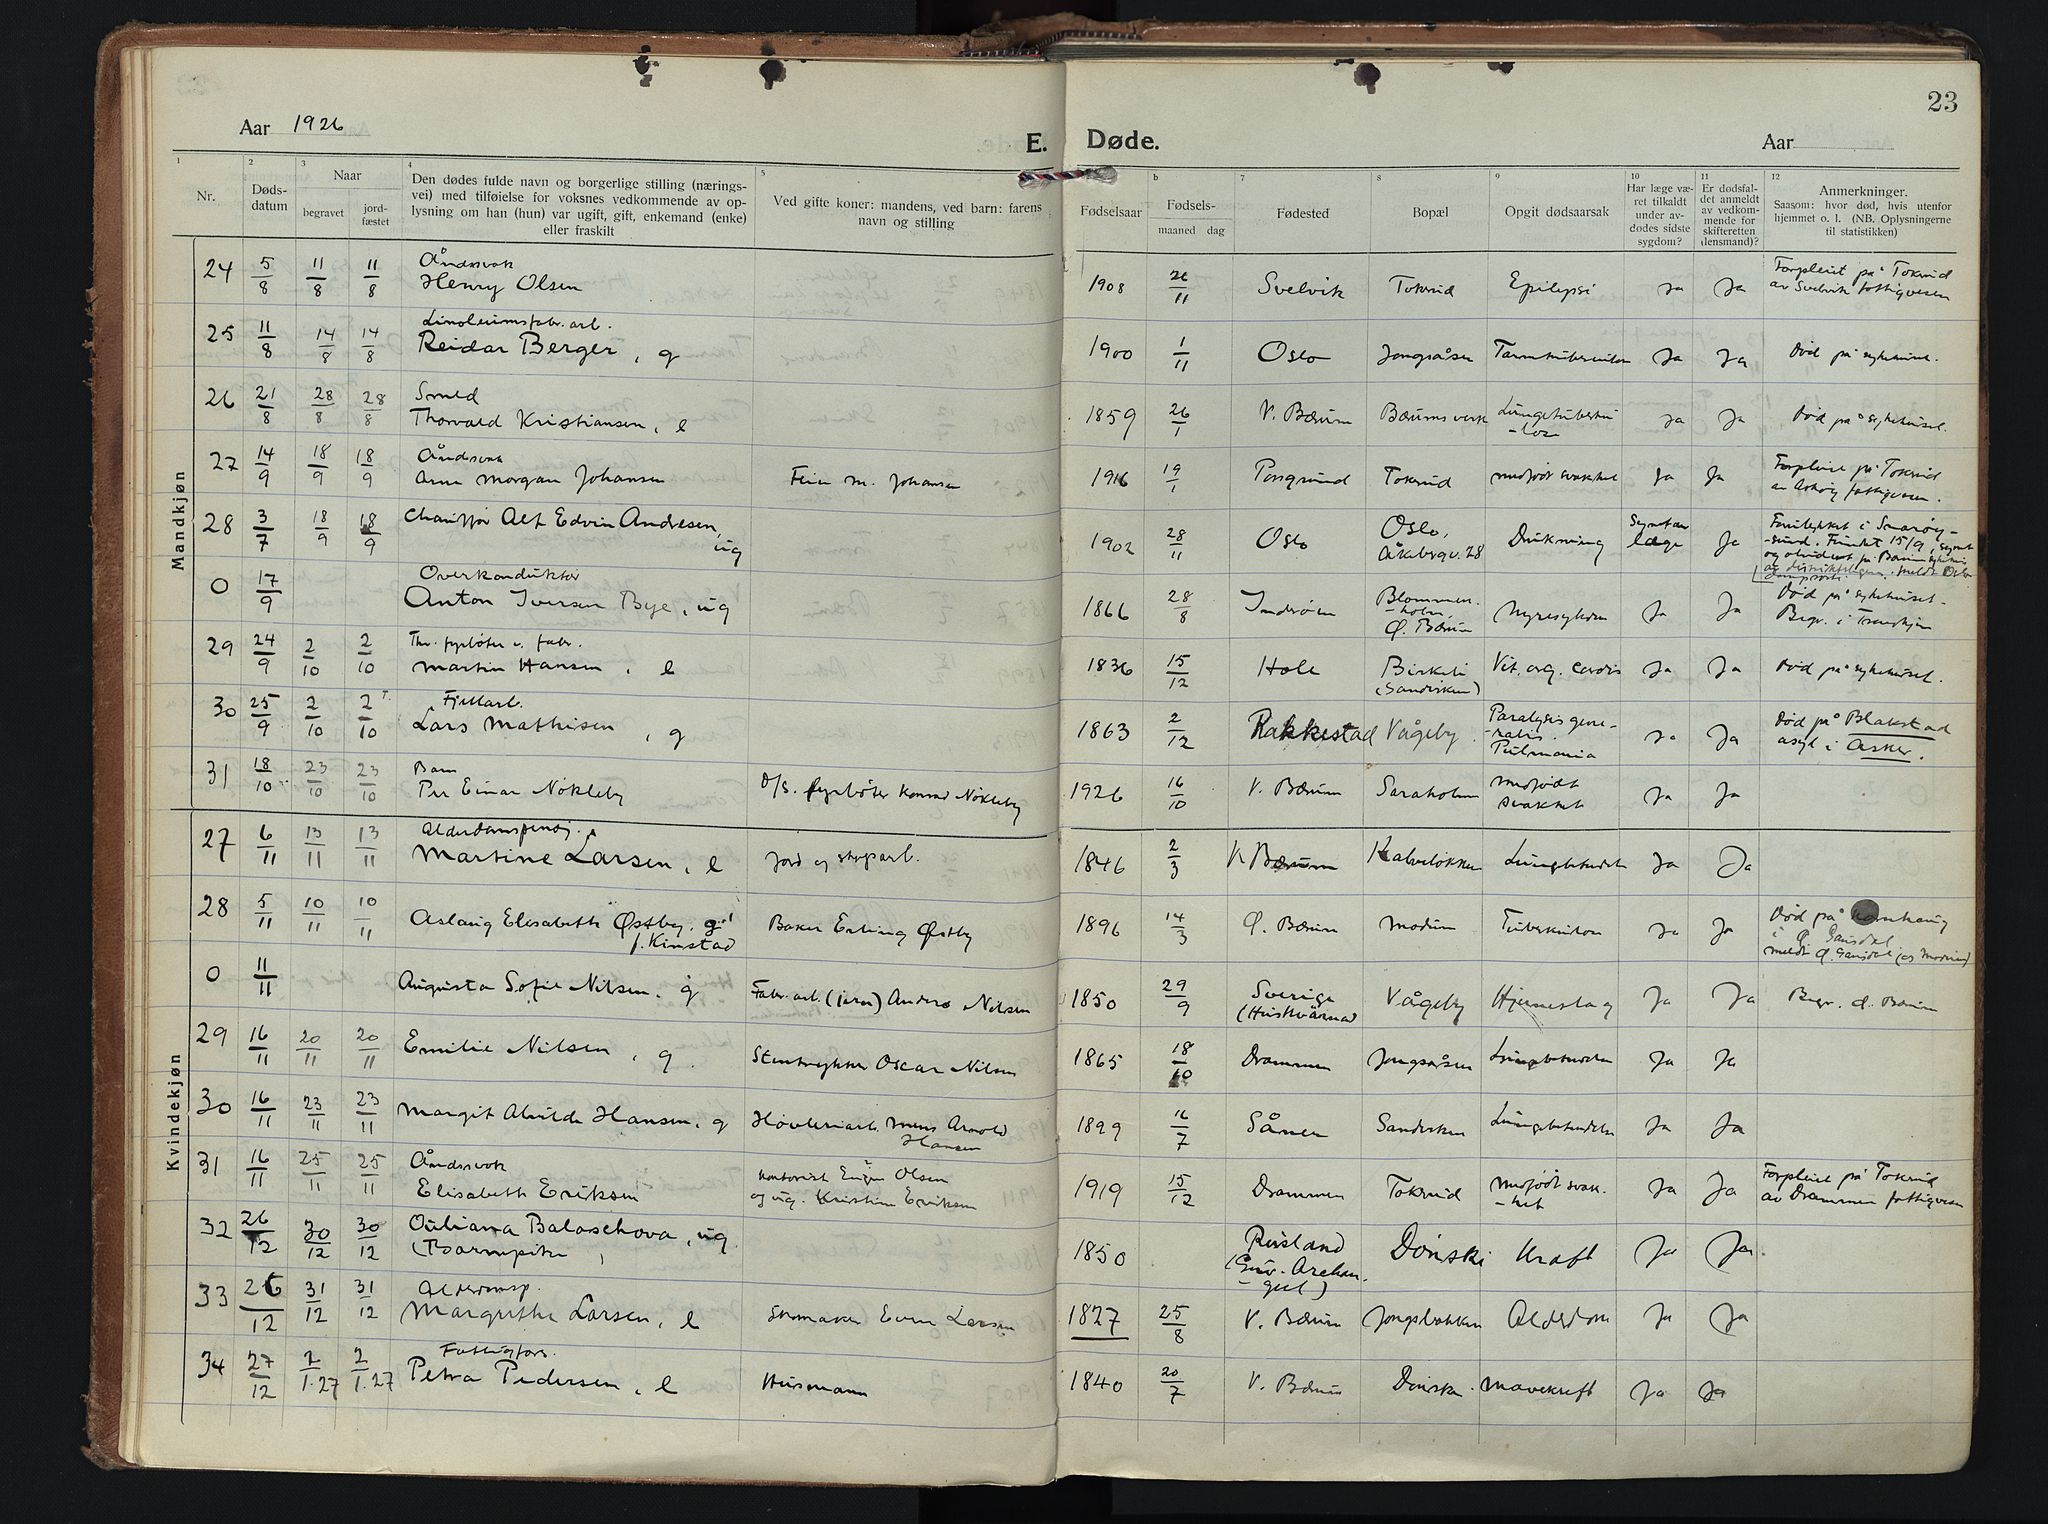 23
Aar 1926
E. Døde.
Aar
1 2 3 4 5 b 7 8 9 10 11 12
Nr.
Døds-
datum
Naar
begravet
jord-
fæstet
Den dødes fulde navn og borgerlige stilling (nærings-
vei) med tilføielse for voksnes vedkommende av op-
lysning om han (hun) var ugift, gift, enkemand (enke)
eller fraskilt
Ved gifte koner: mandens, ved barn: farens
navn og stilling
Fødselsaar
Fødsels-
maaned dag
Fødested
Bopæl
Opgit dødsaarsak
Har læge væ-
ret tilkaldt
under av-
dødes sidste
sygdom?
Er dødsfal-
det anmeldt
av vedkom-
mende for
skifteretten
(lensmand)?
Anmerkninger.
Saasom: hvor død, hvis utenfor
hjemmet o. l. (NB. Oplysningerne
til statistikken)
Mandkjøn
24 5/8 11/8 11/8 Åndssvak
Henry Olsen 1908 26/11 Svelvik Tokerud Epilepsi Ja Ja Forpleiet på Tokerud
av Svelvik fattigvesen
25 11/8 14/8 14/8 Linoleumsfabr. arb.
Reidar Berger, g 1900 1/11 Oslo Jongsåsen Tarmtuberkulose Ja Ja Død på sykehuset.
26 21/8 28/8 28/8 Smed
Thorvald Kristiansen, e 1859 26/1 V. Bærum Bærums verk Lungetuberku
-lose Ja Ja Død på sykehuset.
27 14/9 18/9 18/9 Åndssvak
Arne Morgan Johansen Feier M. Johansen 1916 19/1 Porsgrund Tokerud medfødt svakhet Ja Ja Forpleiet på Tokerud
av fattigvesen.
28 3/7 18/9 18/9 Chauffør Alf Edvin Andresen,
ug 1902 28/11 Oslo Oslo,
Åkebergv. 28 Drukning læge Ja Forulykket i Snarøy-
-sund. Fundet 15/9,
0 17/9 Overkonduktør
Anton Iversen Bye, ug 1866 28/8 Inderøen Blommen-
-holm,
Ø. Bærum Nyresykdom Ja Ja Død på sykehuset.
Begr. i Trondhjem
29 24/9 2/10 2/10 Fhv. fyrbøter v. fabr.
Martin Hansen, e 1836 15/12 Hole Birkeli
(Sandviken) Vit. org. cordis Ja Ja Død på sykehuset.
30 25/9 2/10 2/10 Fjellarb.
Lars Mathisen, g 1863 2/12 Rakkestad Vågeby Paralysis gene-
-ralis.
Pulmonia Ja Ja Død på Blakstad
asyl i Asker.
31 18/10 23/10 23/10 Barn
Per Einar Nøkleby D/S. fyrbøter Konrad Nøkleby 1926 16/10 V. Bærum Saraholm medfødt
svakhet Ja Ja
Kvindekjøn
27 6/11 13/11 13/11 Alderdomspensj.
Martine Larsen, e Jord og skogarb. 1846 2/3 V. Bærum Kalveløkken Lungebetendelse Ja Ja
28 5/11 10/11 10/11 Aslaug Elisabeth Østby, g
f. Kimstad Baker Erling Østby 1896 14/3 Ø. Bærum Modum Tuberkulose Ja Ja Død på Kornhaug
i Ø. Gausdal
meldt Ø. Gausdal (og Modum)
0 11/11 Augusta Sofie Nilsen, g Fabr. arb. (jern) Anders Nilsen 1850 29/9 Sverige
(Huskvarna) Vågeby Hjerneslag Ja Ja Begr. Ø. Bærum
29 16/11 20/11 20/11 Emilie Nilsen, g Stentrykker Oscar Nilsen 1865 18/10 Drammen Jongsåsen Lungebetendelse Ja Ja
30 16/11 23/11 23/11 Margit Alvilde Hansen, g Høvleriarb. Mens Arnold
Hansen 1899 16/7 Såner Sandviken Lungebetendelse Ja Ja
31 16/11 25/11 25/11 Åndssvak
Elisabeth Eriksen Kontorist Eugen Olsen
og ug. Kristine Eriksen 1919 15/12 Drammen Tokerud medfødt svak-
-het Ja Ja Forpleiet på Tokerud
av Drammen fattigvesen
32 26/12 30/12 30/12 Ouliana Balaschova, ug
(Barnepike) 1850 Rusland
(Guv. Archan-
-gel) Dønski Kraft Ja Ja
33 26/12 31/12 31/12 Alderdomsp.
Margrethe Larsen, e Skomaker Even Larsen 1827 25/8 V. Bærum Jongsløkken Alderdom Ja Ja
34 27/12 2/1.27 2/1.27 Fattigfors.
Petra Pedersen, e Husmann 1840 20/7 V. Bærum Dønski Mavekreft Ja Ja